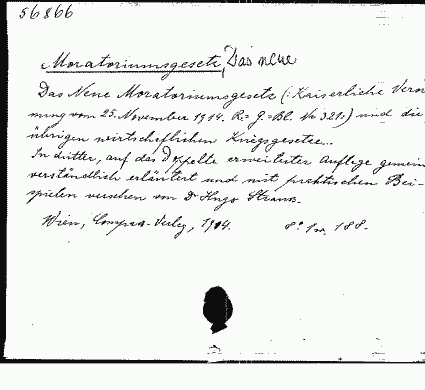 56866
Moratoriumsgesetz, Das neue
Das Neue Moratoriumsgesetz (: Kaiserliche Veror
nung vom 25. November 1914. R.= G.= Bl. No 321:) und die
übrigen wirtscheftlichen Kriegsgesetze..
In dritter, auf das Doppelte erweiterter Auflege gemein
verständlich erläutert und mit praktischen Bei-
spielen versehen von Dr Hugo Strauss.
Wien, Compass-Verleg, 1914. 8° 188.